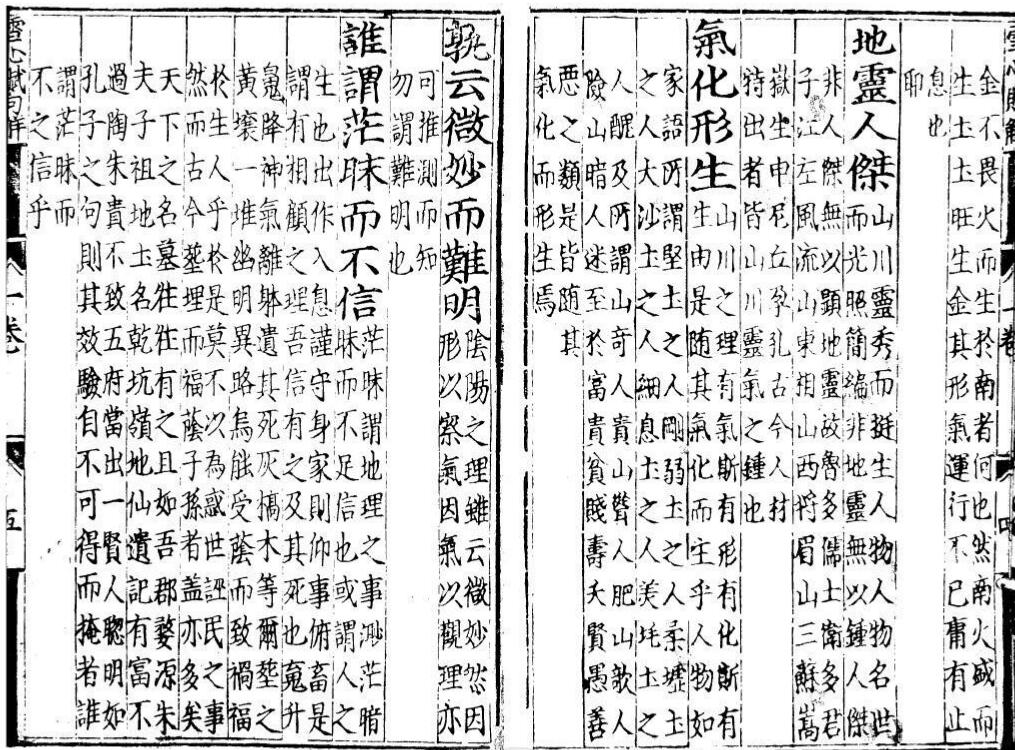 雪心賦句解
一卷
四
金不畏火而生於南者何也然南火盛而
生土土旺生金其形氣運行不已庸有止
息也
耶
地靈人傑
山川靈秀而挺生人物人物名世
而光照簡編非地靈無以鍾人傑
非人傑無以顯地靈故魯多儒士衛多君
子江左風流山東相山西將眉山三蘇嵩
嶽生申尼丘孕孔古今人材
特出者皆山川靈氣之鍾也
氣化形生
山川之理有氣斯有形有化斯有
生由是随其氣化而生乎人物如
家語所謂堅土之人剛弱土之人柔壚土
之人大沙土之人細息土之人美耗土之
人醜及所謂山奇人貴山聳人肥山欹人
險山暗人迷至於富貴貧賤壽夭賢愚善
惡之類是皆随其
氣化而形生焉
孰云微妙而難明
陰陽之理雖云微妙然因
形以察氣因氣以觀理亦
可推測而知
勿謂難明也
誰謂茫昧而不信
茫昧謂地理之事渺茫暗
昧而不足信也或謂人之
生也出作入息謹守身家則仰事俯畜是
謂有相顧之理吾信有之及其死也䰟升
䰟降神氣離躰遺其死灰槁木等爾塟之
黃壤一堆幽明異路烏能受蔭而致禍福
於生人乎於是莫不以為惑世誣民之事
然而古今塟理而福蔭子孫者盖亦多矣
天下之名墓往往有之且如吾郡婺源朱
夫子祖地土名乾坑嶺地仙遺記有富不
過陶朱貴不致五府當出一賢人聰明如
孔子之句則其效驗自不可得而掩者誰
謂茫昧而
不之信乎
雪心賦句解
一卷
五